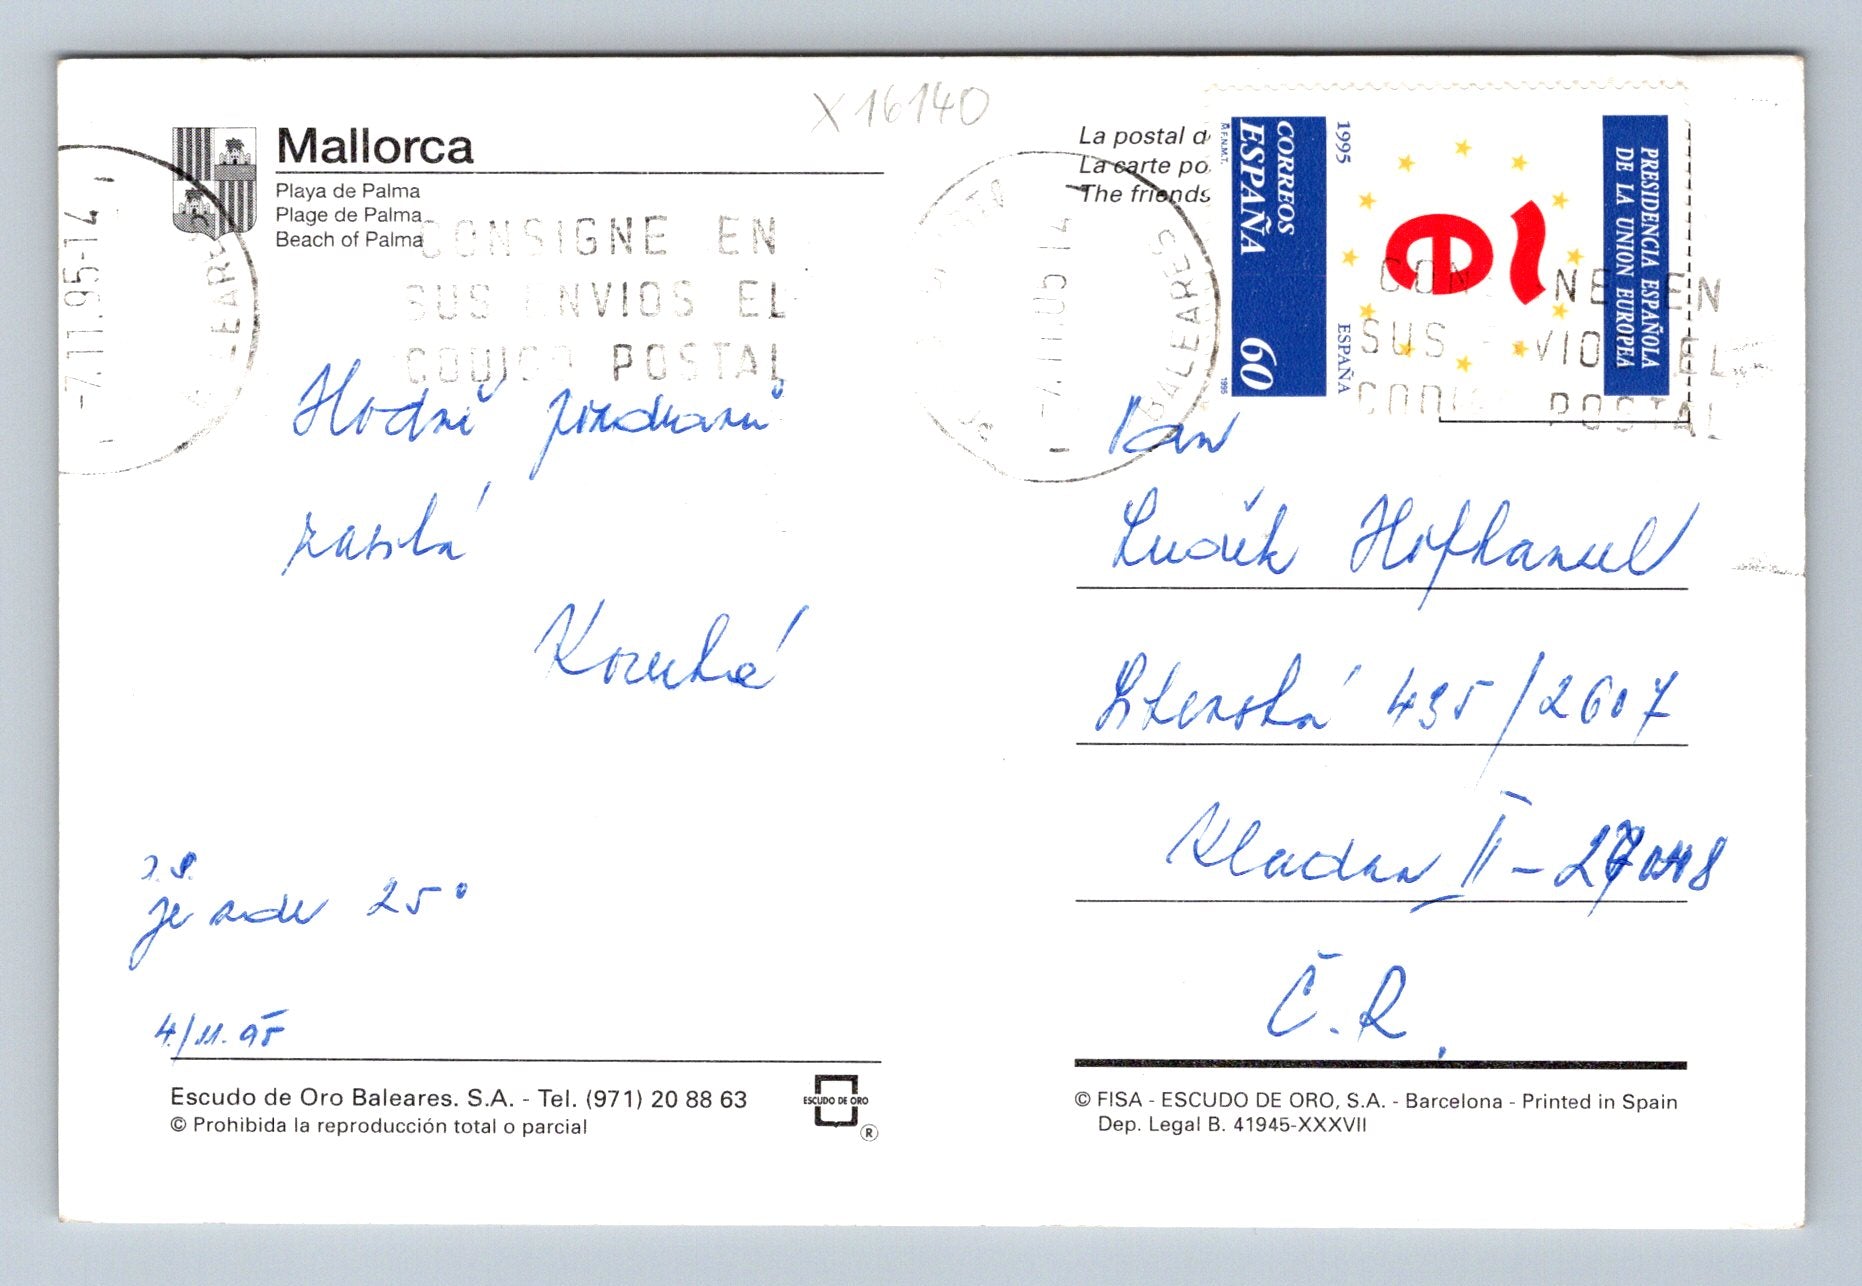 X 16140
Mallorca
Playa de Palma
Plage de Palma
Beach of Palma
La postal d
La carte po
The friends
CORREOS
ESPAÑA
60
M.F.N.M.T.
1995
1995
ESPAÑA
PRESIDENCIA ESPAÑOLA
DE LA UNION EUROPEA
e
-7.11.95-14
BALEARES
CONSIGNE EN
SUS ENVIOS EL
CODIGO POSTAL
BALEARES
CON NE EN
SUS VIO EL
CODI POSTAL
Hodně pozdravů
zasílá
Pan
Luděk Hofhansel
435/2607
Kladno II - 27008
Č.R.
je zde 25°
4./11. 95
Escudo de Oro Baleares. S.A. - Tel. (971) 20 88 63
© Prohibida la reproducción total o parcial
ESCUDO DE ORO
®
© FISA - ESCUDO DE ORO, S.A. - Barcelona - Printed in Spain
Dep. Legal B. 41945-XXXVII